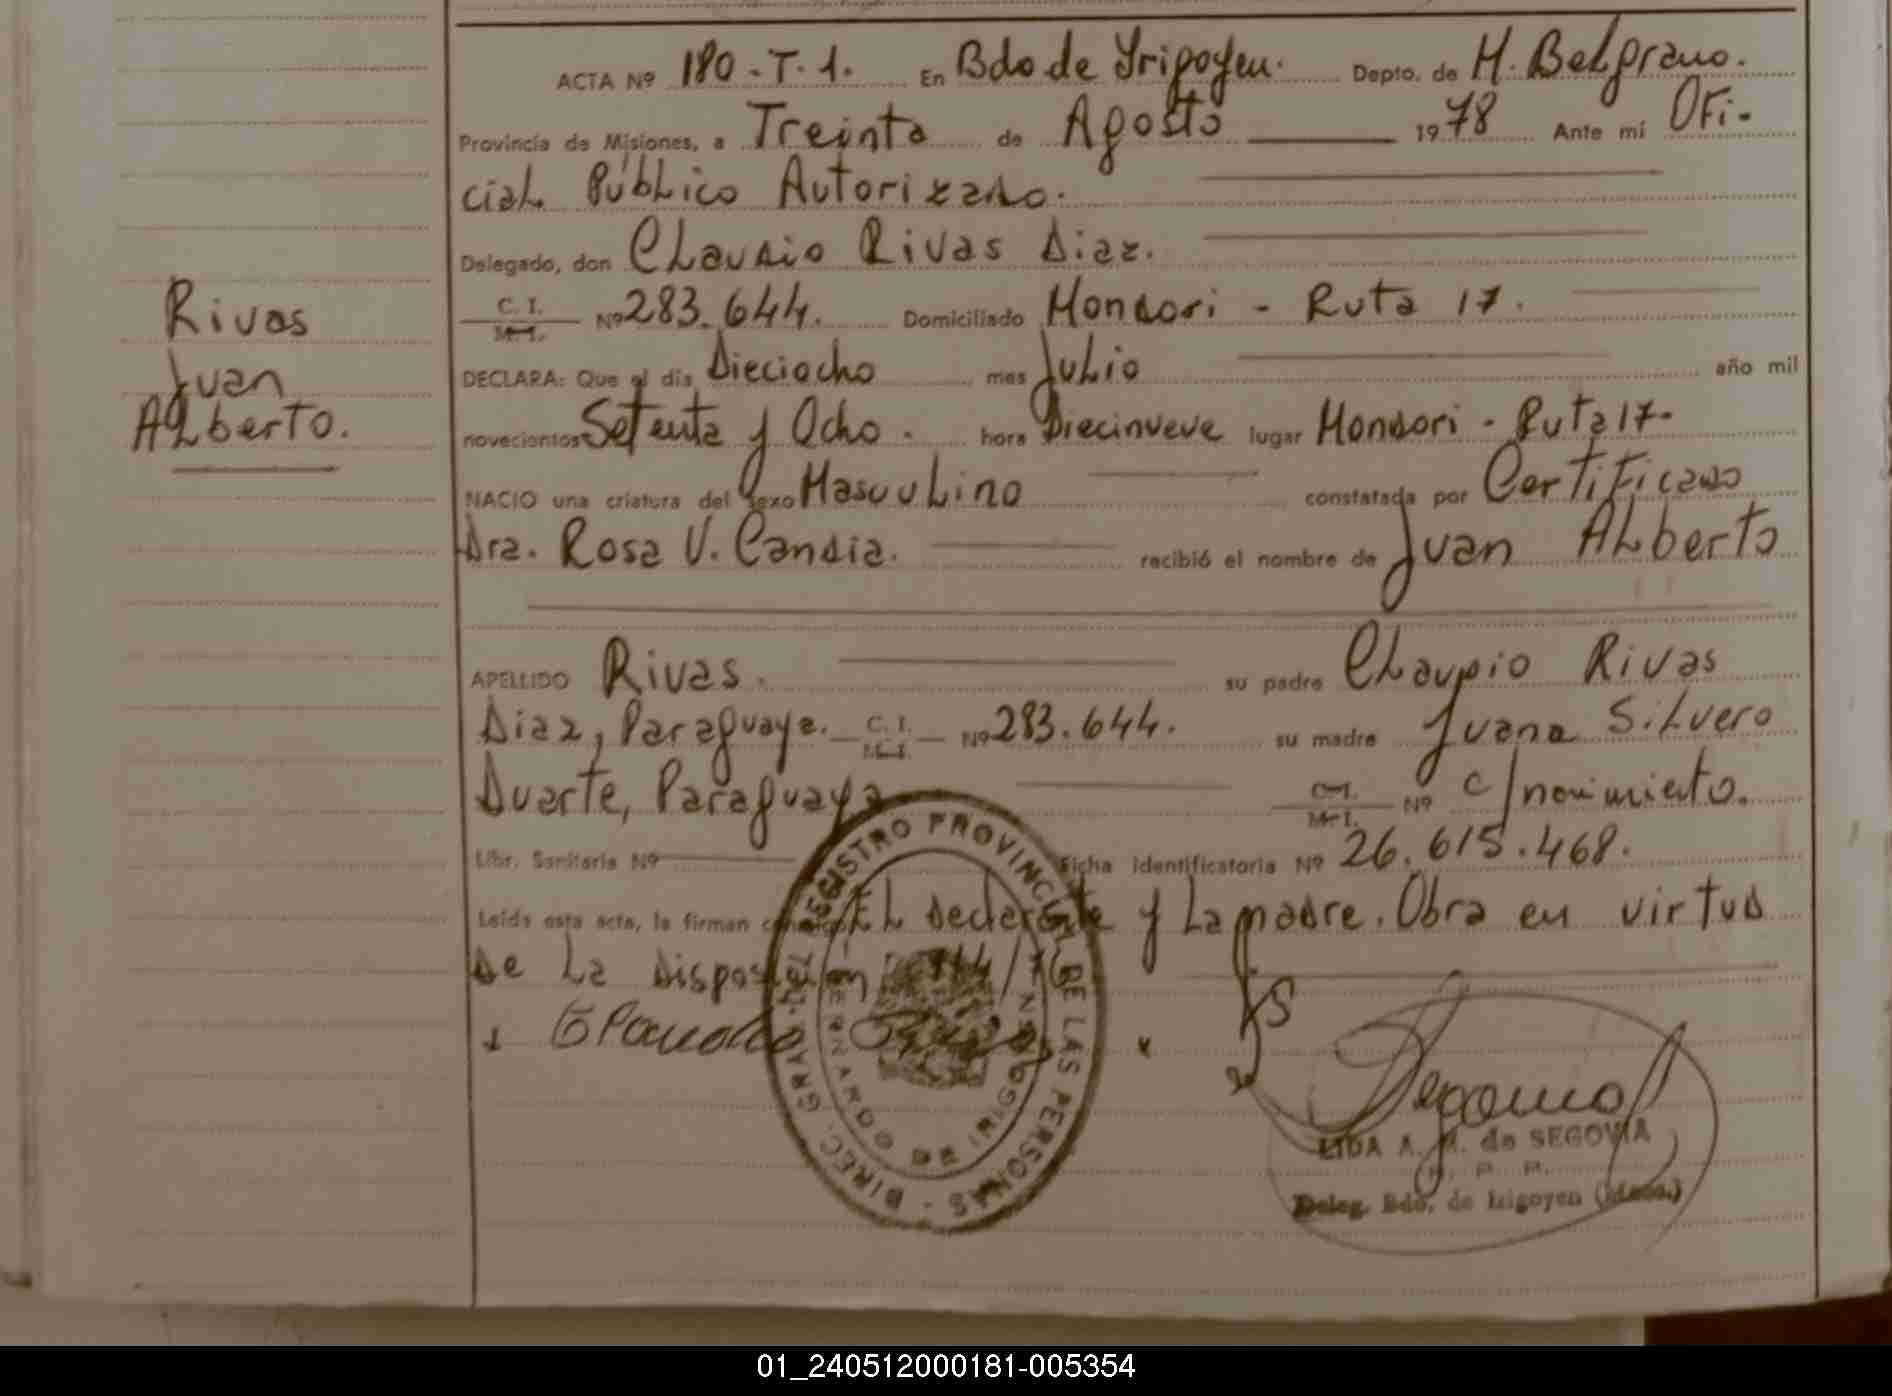 ACTA Nº 180-T.1. En Bdo de Yrigoyen. Depto. de M. Belgrano.
Provincia de Misiones, a Treinta de Agosto 1978 Ante mí Ofi-
cial Público Autorizado.
Delegado, don Claudio Rivas Diaz.
C. I. M. I. Nº 283.644. Domiciliado Mondori - Ruta 17.
Rivas
Juan
Alberto.
DECLARA: Que el día Dieciocho mes Julio año mil
novecientos Setenta y Ocho. hora Diecinueve lugar Mondori - Ruta 17-
NACIO una criatura del sexo Masculino constatada por Certificado
Dra. Rosa V. Candia. recibió el nombre de Juan Alberto
APELLIDO Rivas. su padre Claudio Rivas
Diaz, Paraguaya. C. I. M. I. Nº 283.644. su madre Juana Silvero
Duarte, Paraguaya C. I. M. I. Nº c/nocimiento.
Libr. Sanitaria Nº Ficha identificatoria Nº 26.615.468.
Leída esta acta, la firman El declarante y La madre. Obra en virtud
de La
JS
LIDA A. M. de SEGOVIA
Deleg. Bdo. de Irigoyen (Mnes.)
DIREC. GRAL. DEL REGISTRO PROVINCIAL DE LAS PERSONAS
BERNARDO DE IRIGOYEN
01_240512000181-005354